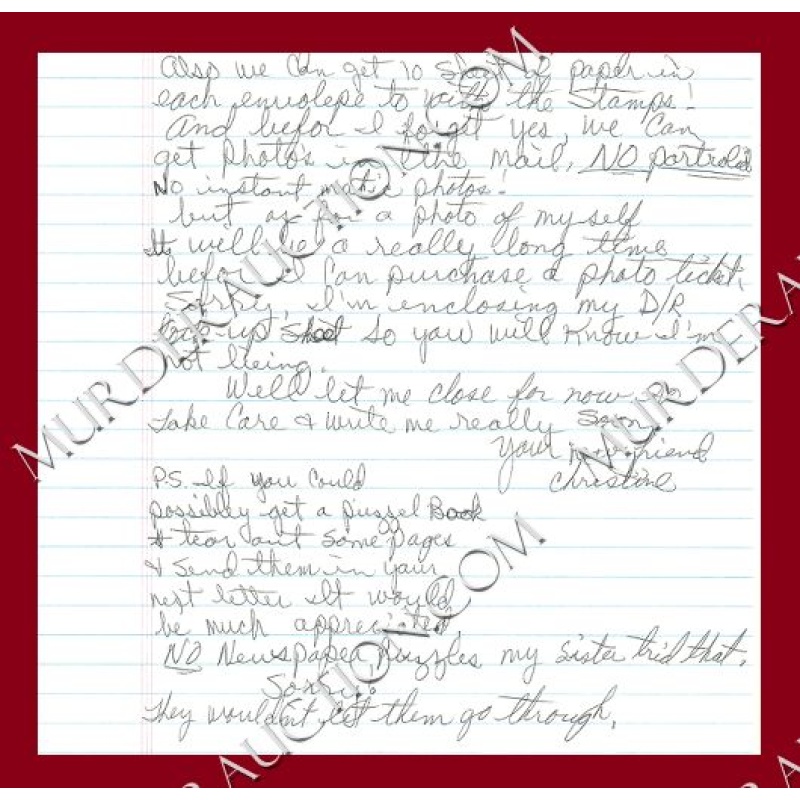 Also we Can get 10 of paper in
each envolepe to with the Stamps!
And befor I forget yes, we Can
get photo's in the mail, NO partroid
No instant matic photos!
but as for a photo of my self
It will be a really long time
befor I Can purchase a photo ticket,
Sorry, I'm enclosing my D/R
up Sheet So you will Know I'm
not lieing.
Well let me close for now, so
Take Care & write me really Soon
Your new friend
Christine
P.S. If you Could
possibley get a puzzel Book
& tear out Some pages
& Send them in your
next letter It would
be much appreciated,
NO Newspaper puzzles my Sister trid that,
Sorry!
They wouldn't let them go through,
MURDERAUCTION.COM
MURDERAUCTION.COM
MURDERA